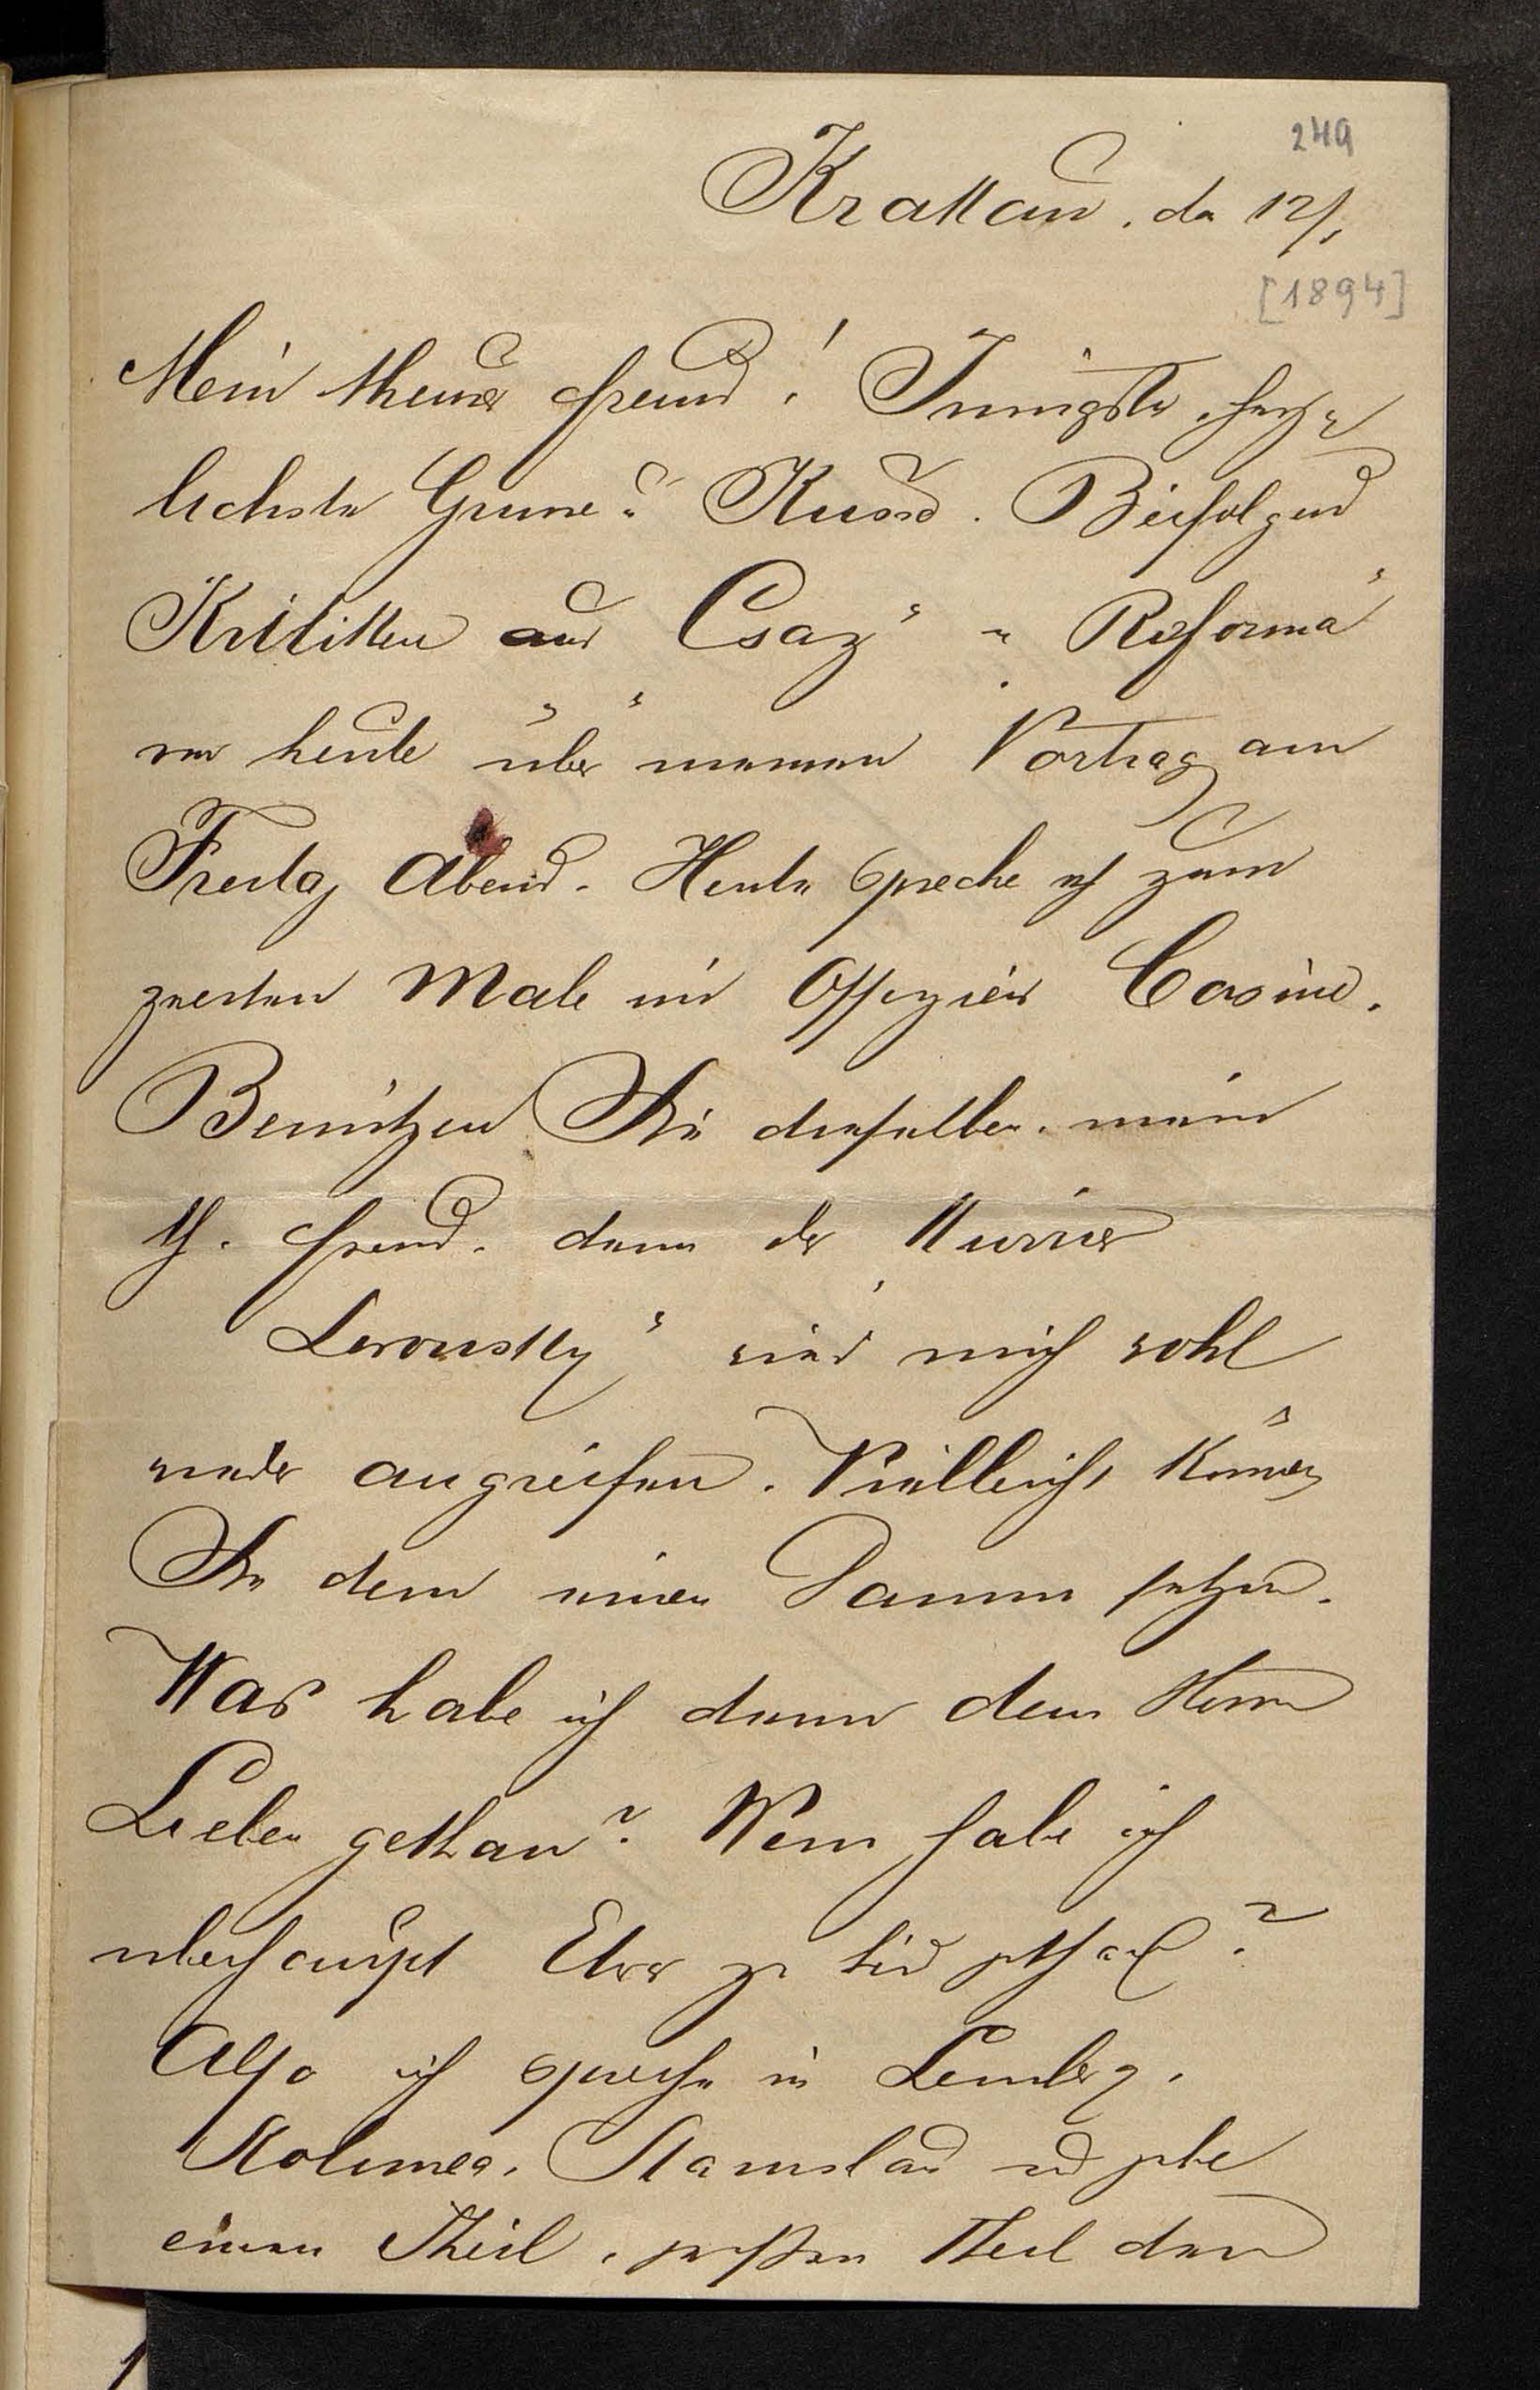 249
Krakau, den 12/1
[1894]
Mein theurer Freund! Innigste, herz-
lichste Grüsse u Kuss. Beifolgend
Kritiken aus „Csaz“ u „Reforma“
von heute über meinen Vortrag am
Freitag Abend. Heute spreche ich zum
zweiten Male im Offizier Casino.
Benützen Sie dieselben, mein
th. Freund, denn der Kurrier
Lwowsky“ wird mich wohl
wieder angreifen. Vielleicht können
Sie dem einen Damm setzen.
Was habe ich denn dem Herrn
Lieben gethan? Wem habe ich
überhaupt Etwas zu Leid gethan?
Also ich spreche in Lemberg,
Kolomea, Stanislau und gebe
einen Theil, großen Theil dem